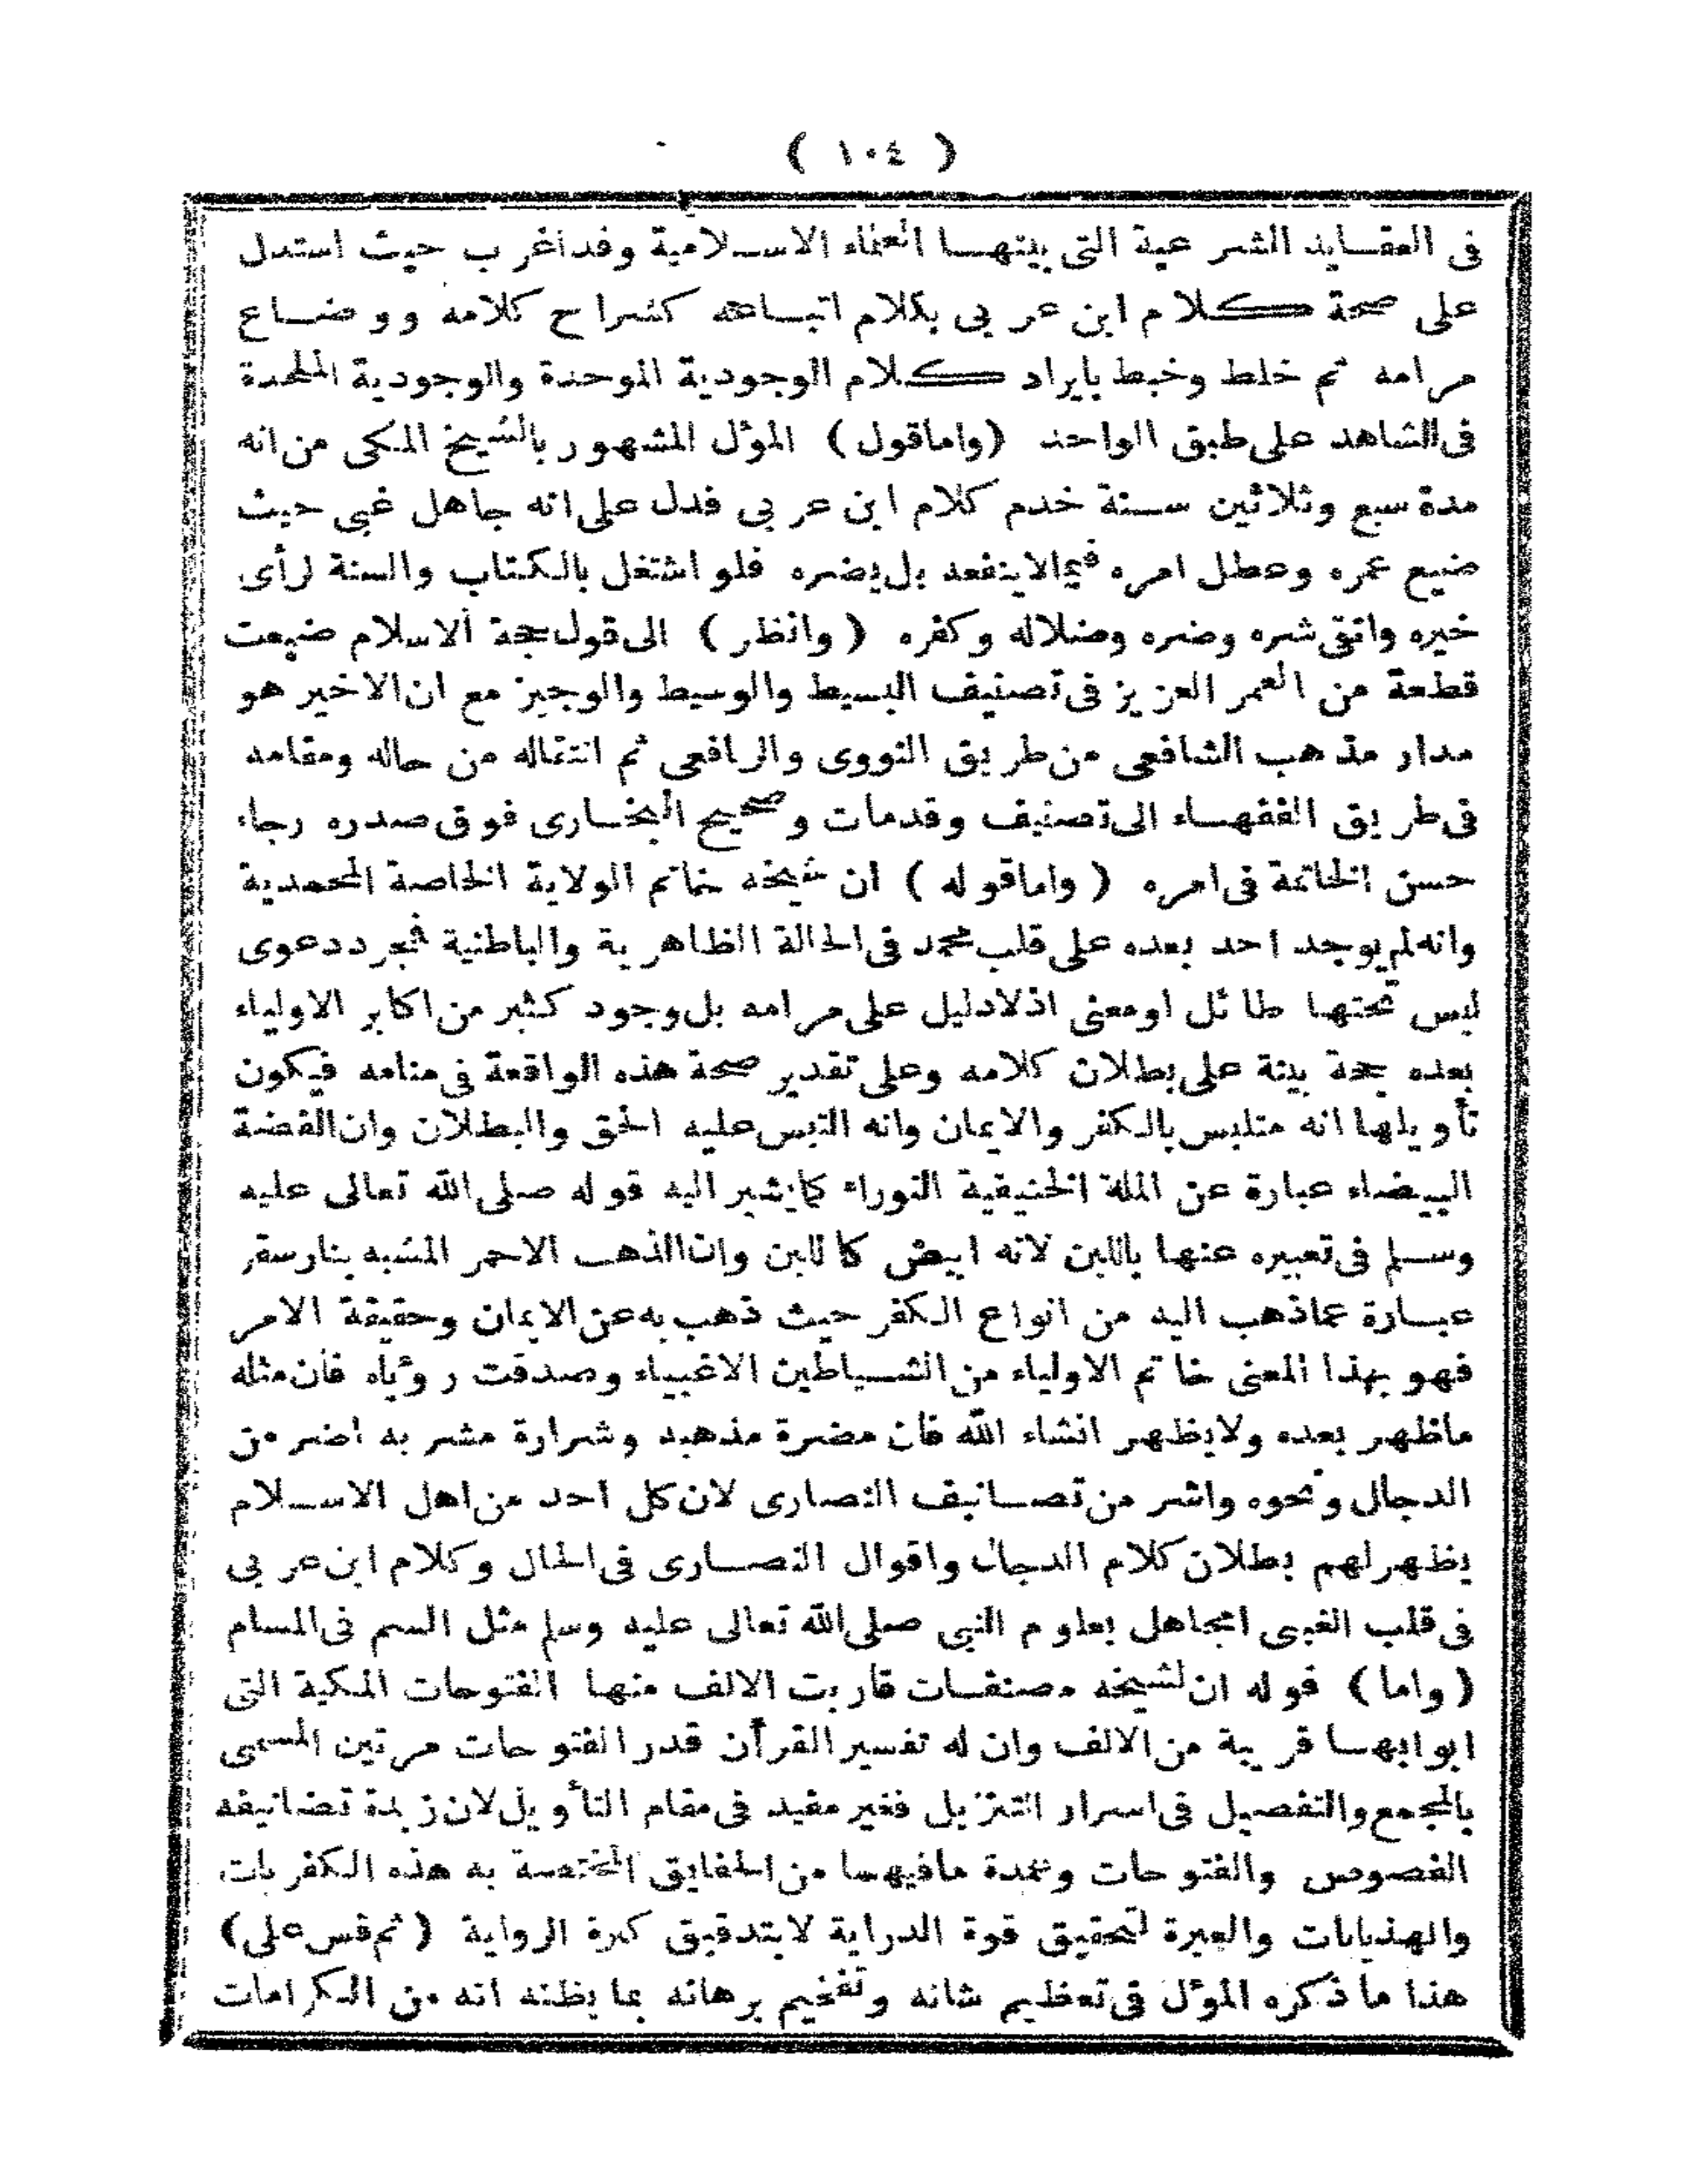 ( ١٠٤ )
فى العقايد الشرعية التى بينتها العلماء الاسلامية وقد اغرب حيث استدل
على صحة كلام ابن عربى بكلام اتباعه كشراح كلامه ووضاع
مرامه ثم خلط وخبط بايراد كلام الوجودية الموحدة والوجودية الملحدة
فى الشاهد على طبق الواحد (واماقول) المؤل المشهور بالشيخ المكى من انه
مدة سبع وثلاثين سنة خدم كلام ابن عربى فدل على انه جاهل غبى حيث
ضيع عمره وعطل امره فيما لاينفعه بل يضره فلو اشتغل بالكتاب والسنة لرأى
خيره واتقى شره وضره وضلاله وكفره (وانظر) الى قول حجة الاسلام ضيعت
قطعة من العمر العزيز فى تصنيف البسيط والوسيط والوجيز مع ان الاخير هو
مدار مذهب الشافعى من طريق النووى والرافعى ثم انتقاله من حاله ومقامه
فى طريق الفقهاء الى تصنيف وقدمات وصحيح البخارى فوق صدره رجاء
حسن الخاتمة فى امره (واماقوله) ان شيخه خاتم الولاية الخاصة المحمدية
وانه لم يوجد احد بعده على قلب محمد فى الحالة الظاهرية والباطنية فمجرد دعوى
ليس تحتها طائل اومعنى اذلادليل على مرامه بل وجود كثير من اكابر الاولياء
بعده حجة بينة على بطلان كلامه وعلى تقدير صحة هذه الواقعة فى منامه فيكون
تأويلها انه متلبس بالكفر والايمان وانه التبس عليه الحق والبطلان وان الفضة
البيضاء عبارة عن الملة الحنيفية النوراء كمايشير اليه قوله صلى الله تعالى عليه
وسلم فى تعبيره عنها باللبن لانه ابيض كاللبن وان الذهب الاحمر المشبه بنارسقر
عبارة عماذهب اليه من انواع الكفر حيث ذهب به عن الايمان وحقيقة الامر
فهو بهذا المعنى خاتم الاولياء من الشياطين الاغبياء وصدقت رؤياه فان مثله
ماظهر بعده ولايظهر انشاء الله فان مضرة مذهبه وشرارة مشربه اضر من
الدجال ونحوه واشر من تصانيف النصارى لان كل احد من اهل الاسلام
يظهرلهم بطلان كلام الدجال واقوال النصارى فى الحال وكلام ابن عربى
فى قلب الغبى الجاهل بعلوم النبى صلى الله تعالى عليه وسلم مثل السم فى المسام
(واما) قوله ان لشيخه مصنفات قاربت الالف منها الفتوحات المكية التى
ابوابها قريبة من الالف وان له تفسير القرآن قدر الفتوحات مرتين المسمى
بالجمع والتفصيل فى اسرار التنزيل فغير مفيد فى مقام التأويل لان زبدة تصانيفه
الفصوص والفتوحات وعمدة مافيهما من الحقايق المختصة به هذه الكفريات
والهذيانات والعبرة لتحقيق قوة الدراية لابتدقيق كثرة الرواية (ثم قس على)
هذا ماذكره المؤل فى تعظيم شانه وتفخيم برهانه بما يظنه انه من الكرامات